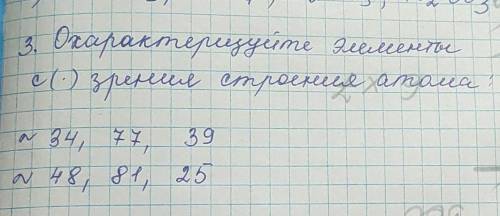 3. Охарактеризуйте элементы
с (·) зрения строения атома:
~ 34, 77, 39
~ 48, 81, 25